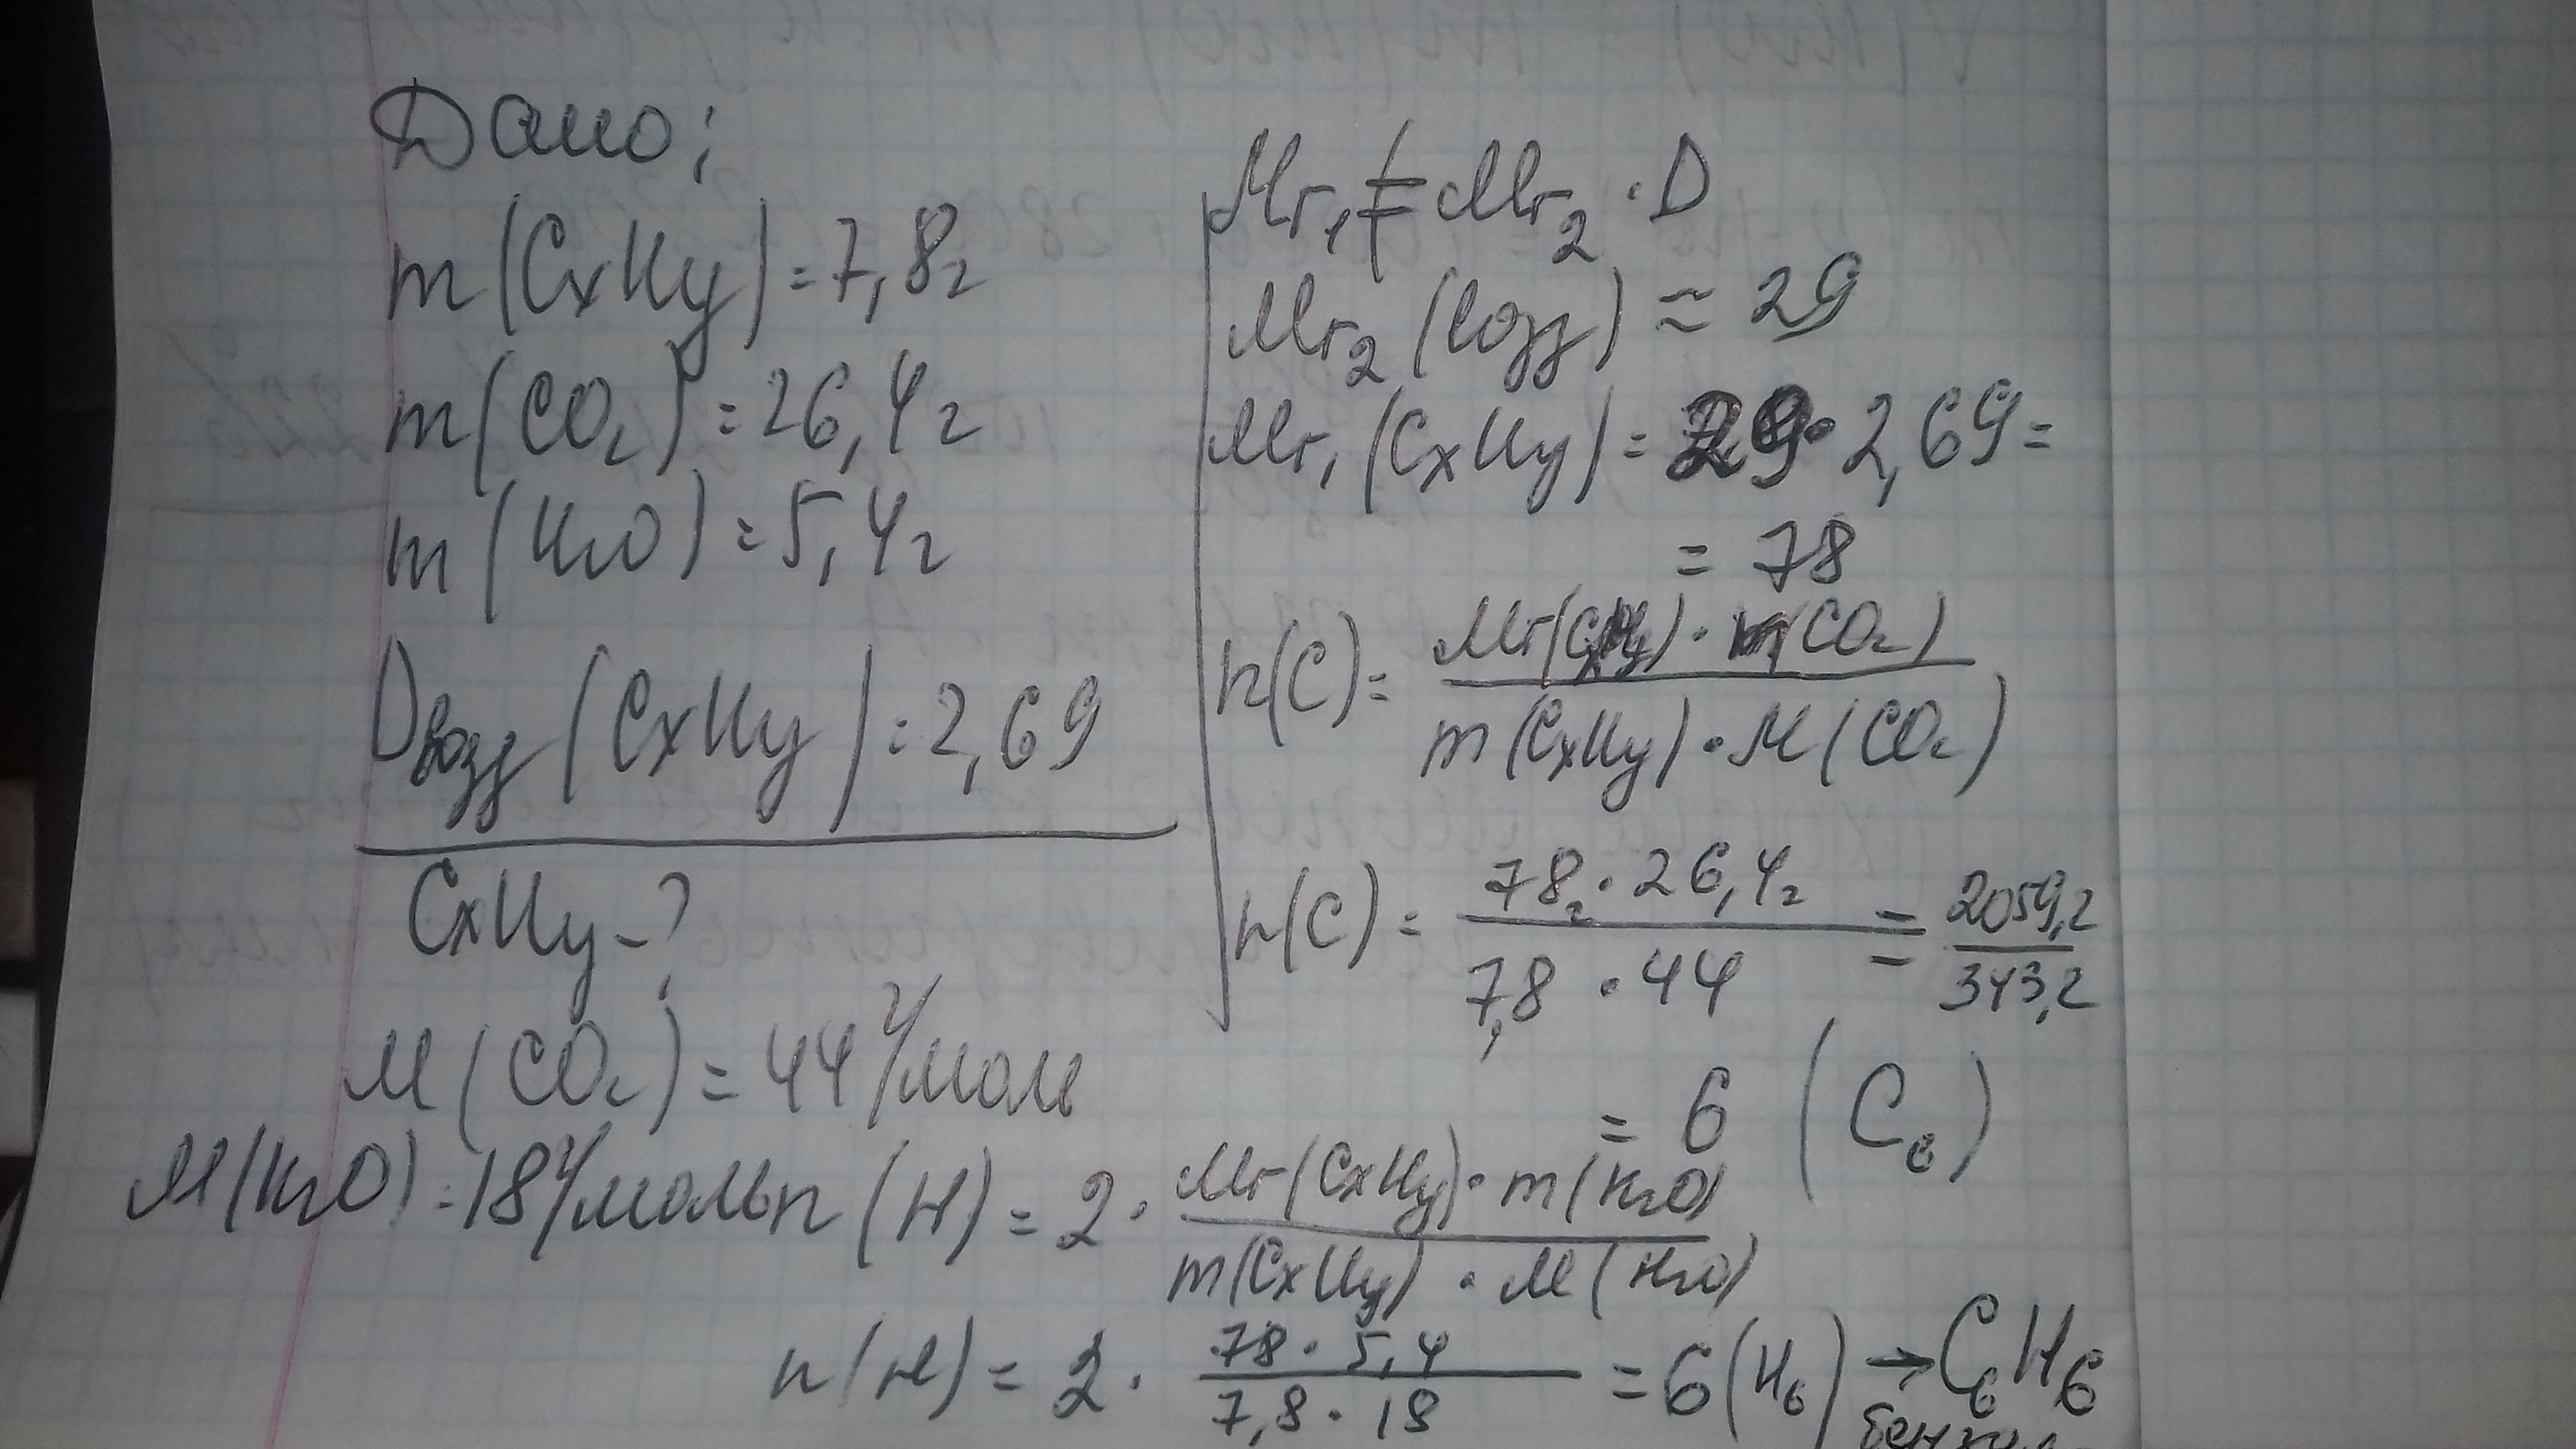 Дано:
m(CxHy) = 7,8г
m(CO2) = 26,4г
m(H2O) = 5,4г
Dвозд(CxHy) = 2,69
CxHy - ?
M(CO2) = 44 г/моль
M(H2O) = 18 г/моль
Mr1 = Mr2 · D
Mr2(возд) ≈ 29
Mr1(CxHy) = 29 · 2,69 =
= 78
n(C) = Mr(CxHy) · m(CO2) / m(CxHy) · M(CO2)
n(C) = 78г · 26,4г / 7,8 · 44 = 2059,2 / 343,2
= 6 (C6)
n(H) = 2 · Mr(CxHy) · m(H2O) / m(CxHy) · M(H2O)
n(H) = 2 · 78 · 5,4 / 7,8 · 18 = 6 (H6) → C6H6